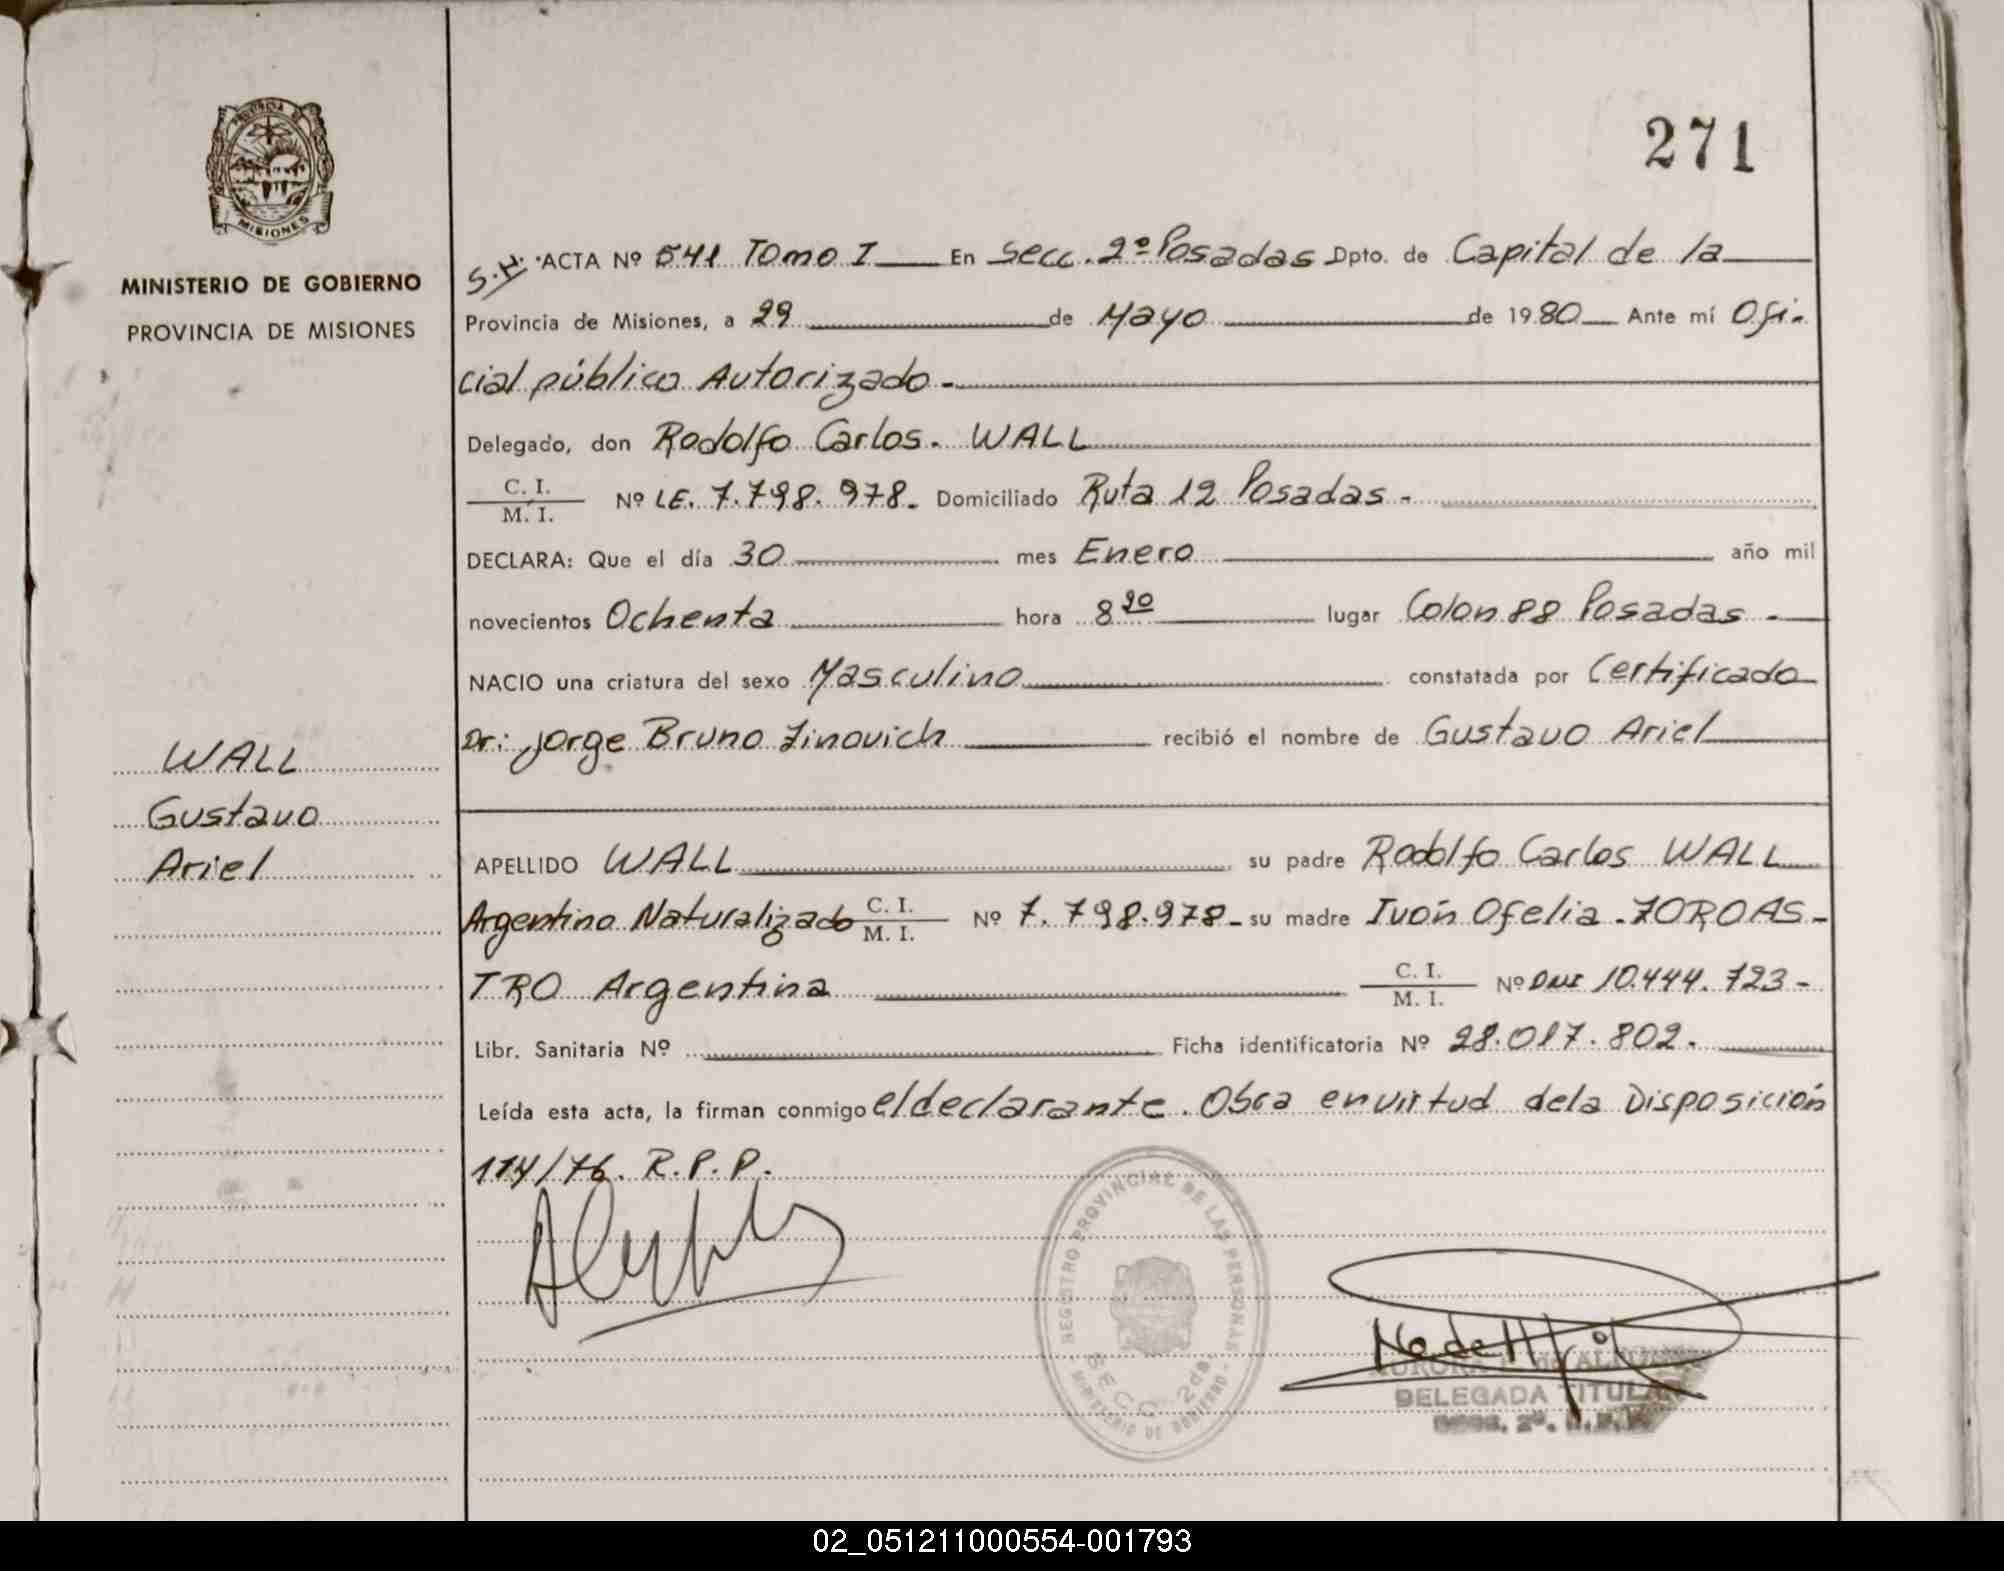 271
PROVINCIA DE
MISIONES
MINISTERIO DE GOBIERNO
PROVINCIA DE MISIONES
WALL
Gustavo
Ariel
S.H. ACTA Nº 541 Tomo I En Secc. 2º Posadas Dpto. de Capital de la
Provincia de Misiones, a 29 de Mayo de 1980 Ante mí Ofi-
cial público Autorizado.
Delegado, don Rodolfo Carlos. WALL
C. I. / M. I. Nº LE. 7.798.978. Domiciliado Ruta 12 Posadas.
DECLARA: Que el día 30 mes Enero año mil
novecientos Ochenta hora 8 20 lugar Colon 88 Posadas.
NACIO una criatura del sexo Masculino constatada por Certificado
Dr: Jorge Bruno Zinovich recibió el nombre de Gustavo Ariel
APELLIDO WALL su padre Rodolfo Carlos WALL
Argentino Naturalizado C. I. / M. I. Nº 7.798.978- su madre Ivón Ofelia ZOROAS-
TRO Argentina C. I. / M. I. Nº DNI 10.444.723-
Libr. Sanitaria Nº Ficha identificatoria Nº 28.017.802.
Leída esta acta, la firman conmigo el declarante. Obra en virtud de la Disposición
114/76. R.P.P.
REGISTRO PROVINCIAL DE LAS PERSONAS
SECC. 2da.
MINISTERIO DE GOBIERNO
AURORA
DELEGADA TITULAR
02_051211000554-001793